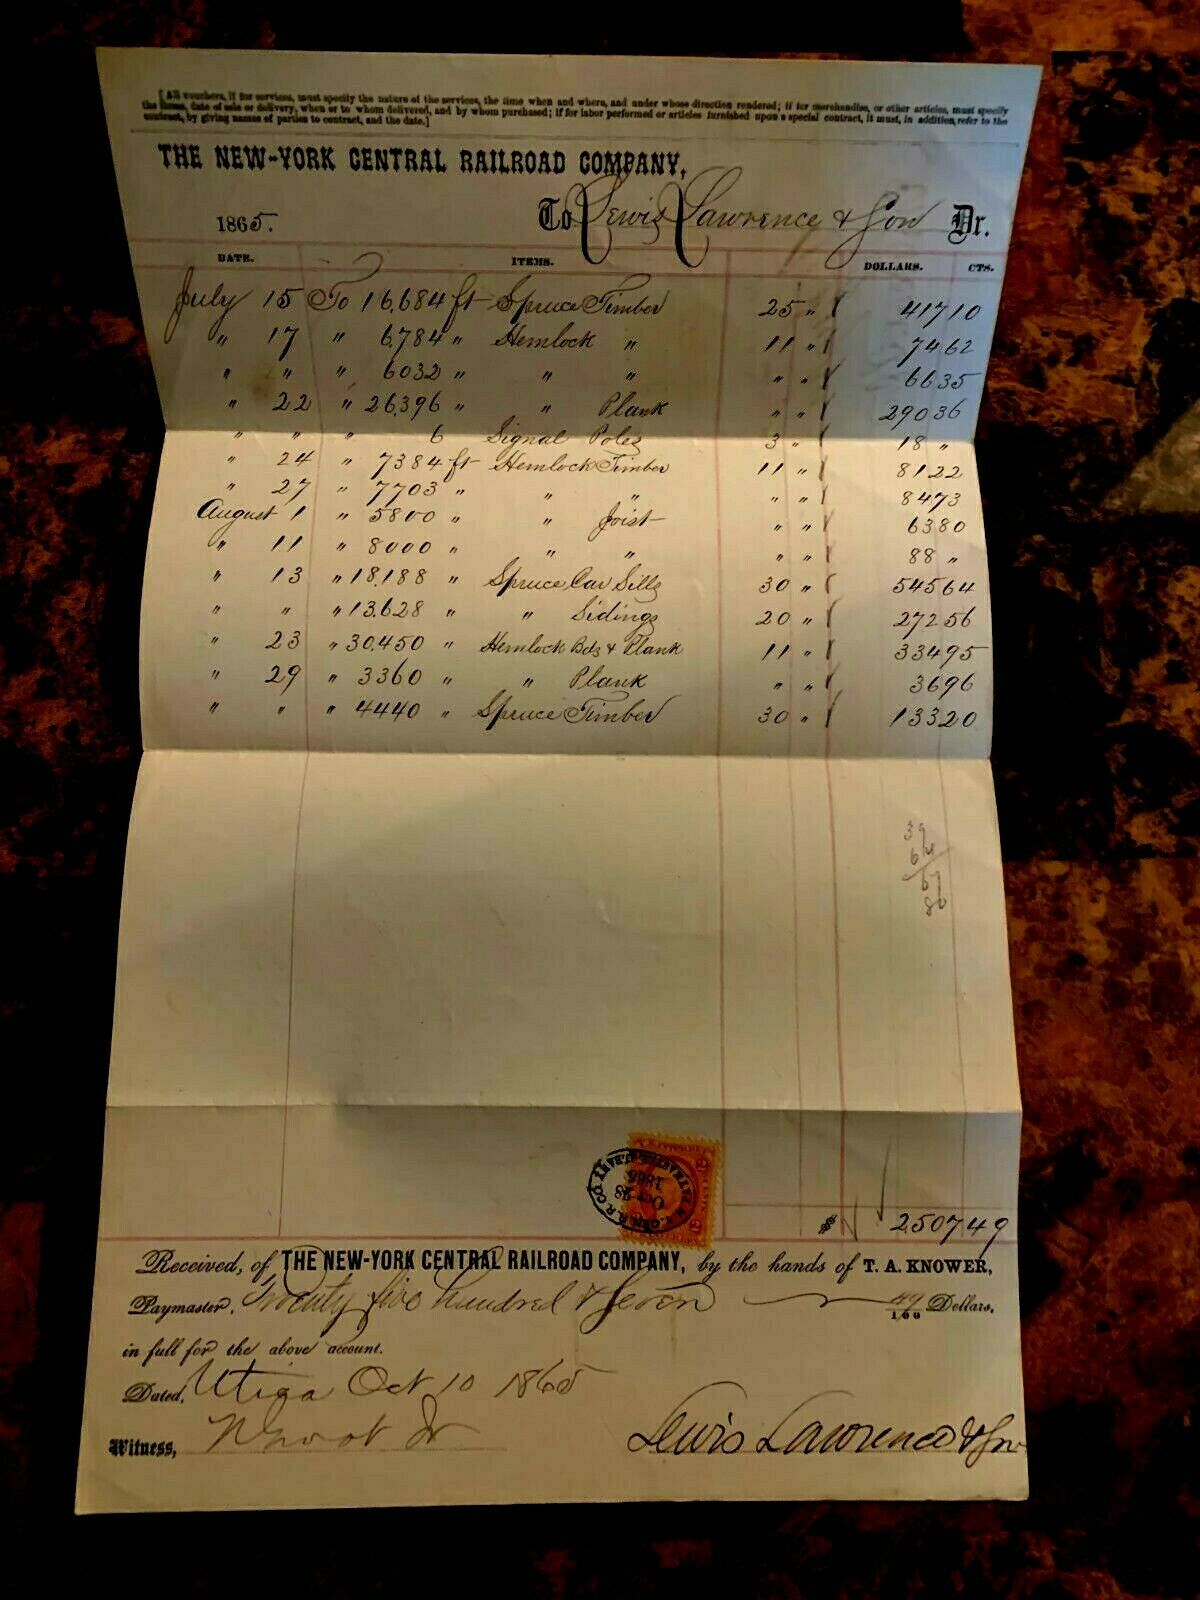 [All vouchers, if for services, must specify the nature of the services, the time when and where, and under whose direction rendered; if for merchandise, or other articles, must specify
the items, date of sale or delivery, when or to whom delivered, and by whom purchased; if for labor performed or articles furnished upon a special contract, it must, in addition, refer to the
contract, by giving names of parties to contract, and the date.]
THE NEW-YORK CENTRAL RAILROAD COMPANY,
1865. To Lewis Lawrence & Son Dr.
DATE. ITEMS. DOLLARS. CTS.
July 15 To 16,684 ft Spruce Timber 25 " 417 10
" 17 " 6,784 " Hemlock " 11 " 74 62
" " " 6032 " " " " " 66 35
" 22 " 26,396 " " Plank " " 290 36
" " " 6 Signal Poles 3 " 18 "
" 24 " 7384 ft Hemlock Timber 11 " 81 22
" 27 " 7703 " " " " " 84 73
August 1 " 5800 " " Joist " " 63 80
" 11 " 8000 " " " " " 88 "
" 13 " 18,188 " Spruce Car Sills 30 " 545 64
" " " 13,628 " " Sidings 20 " 272 56
" 23 " 30,450 " Hemlock Bds & Plank 11 " 334 95
" 29 " 3360 " " Plank " " 36 96
" " " 4440 " Spruce Timber 30 " 133 20
$ 2507 49
Received, of THE NEW-YORK CENTRAL RAILROAD COMPANY, by the hands of T. A. KNOWER,
Paymaster, Twenty five hundred & Seven 49/100 Dollars,
in full for the above account.
Dated, Utica Oct 10 1865
Witness, Lewis Lawrence & Son